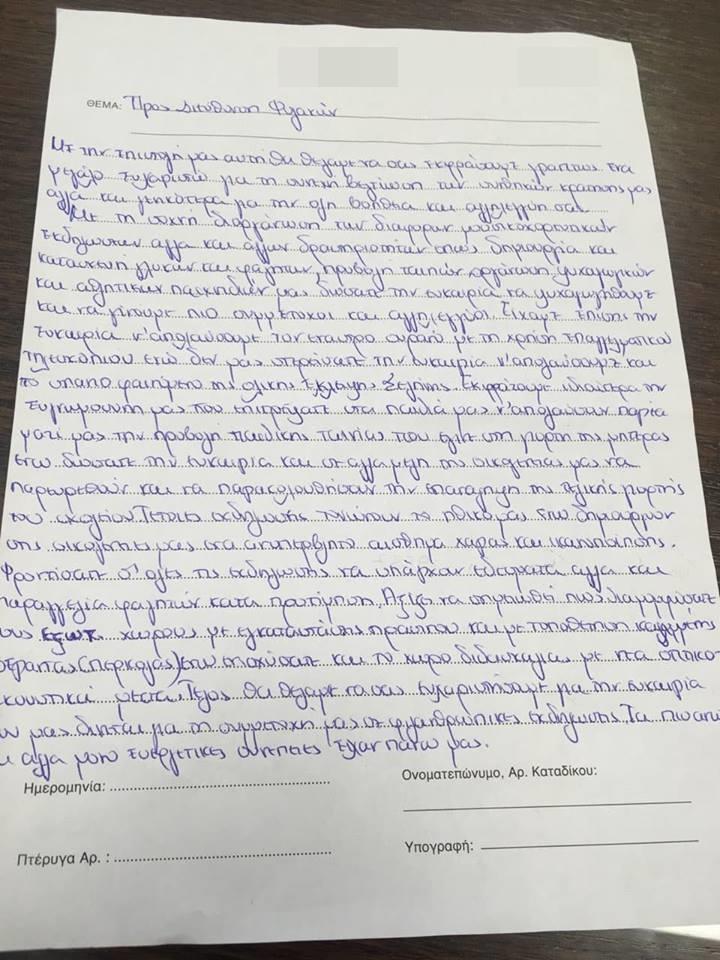 ΘΕΜΑ: Προς Διεύθυνση Φυλακών
Με την επιστολή μας αυτή θα θέλαμε να σας εκφράσουμε γραπτώς ένα
μεγάλο ευχαριστώ για τη συνεχή βελτίωση των συνθηκών κράτησης μας
αλλά και γενικότερα για την όλη βοήθεια και αλληλεγγύη σας.
Με τη συχνή διοργάνωση των διαφόρων μουσικοχορευτικών
εκδηλώσεων αλλά και άλλων δραστηριοτήτων όπως δημιουργία και
κατασκευή γλυκών και φαγητών, προβολή ταινιών, οργάνωση ψυχαγωγικών
και αθλητικών παιχνιδιών μας δώσατε την ευκαιρία να ψυχαγωγηθούμε
και να γίνουμε πιο συμμέτοχοι και αλληλέγγυοι. Είχαμε επίσης την
ευκαιρία ν'απολαύσουμε τον έναστρο ουρανό με τη χρήση επαγγελματικού
τηλεσκόπιου ενώ δεν μας στερήσατε την ευκαιρία ν'απολαύσουμε και
το σπάνιο φαινόμενο της ολικής έκλειψης Σελήνης. Εκφράζουμε ιδιαίτερα την
ευγνωμοσύνη μας που επιτρέψατε στα παιδιά μας ν'απολαύσουν παρέα
μας την προβολή παιδικής ταινίας που έγινε στη γιορτή της μητέρας
ενώ δώσατε την ευκαιρία και σε άλλα μέλη της οικογένειας μας να
παρευρεθούν και να παρακολουθήσουν την επανάληψη της τελικής γιορτής
του σχολείου. Τέτοιες εκδηλώσης τονώνουν το ηθικό μας ενώ δημιουργούν
στις οικογένειες μας ένα ανυπέρβλητο αίσθημα χαράς και ικανοποίησης.
Φροντίσατε σ'όλες τις εκδηλώσης να υπάρχουν εδέσματα αλλά και
παραγγελία φαγητών κατά προτίμηση. Αξίζει να σημειωθεί πως διαμορφώσατε
τους εξωτ. χώρους με εγκαταστάσης πρασίνου και με τοποθέτηση καλαμωτής
(πέργκολας) ενώ ενισχύσατε και το χώρο διδασκαλίας με νέα οπτικο-
ακουστικά μέσα. Τέλος θα θέλαμε να σας ευχαριστήσουμε για την ευκαιρία
που μας δίνεται για τη συμμετοχή μας σε φιλανθρωπικές εκδηλώσης. Τα πιο
αλλά μόνο ευεργετικές συνέπειες είχαν πάνω μας.
Ημερομηνία:
Ονοματεπώνυμο, Αρ. Καταδίκου:
Πτέρυγα Αρ. :
Υπογραφή: